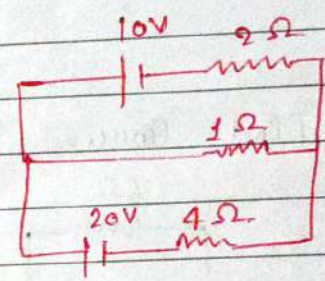 10V 2 Ω
1 Ω
20V 4 Ω